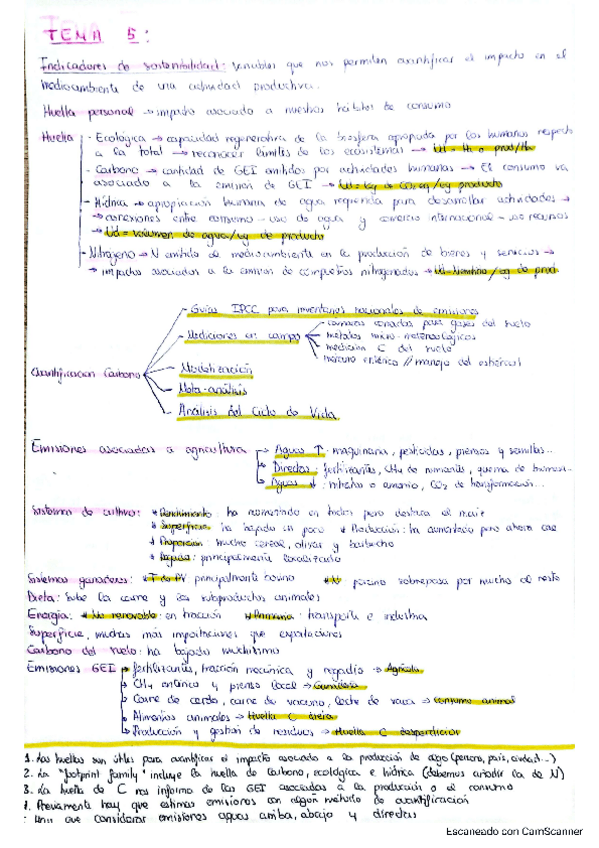 TEMA 5:
Indicadores de sostenibilidad: variables que nos permiten cuantificar el impacto en el
medioambiente de una actividad productiva.
Huella personal → impacto asociado a nuestros hábitos de consumo
Huella
- Ecológica → capacidad regenerativa de la biosfera apropiada por los humanos respecto
a la total → reconocer límites de los ecosistemas → Ud = Ha
- Carbono → cantidad de GEI emitidos por actividades humanas → El consumo va
asociado a la emisión de GEI → Ud = kg de CO2 eq / kg producto
- Hídrica → apropiación humana de agua requerida para desarrollar actividades →
→ conexiones entre consumo - uso de agua y comercio internacional - uso recursos
→ Ud = volumen de agua / kg de producto
- Nitrógeno → N emitido al medioambiente en la producción de bienes y servicios →
→ impactos asociados a la emisión de compuestos nitrogenados → / kg de prod.
Cuantificación Carbono
- Guías IPCC para inventarios nacionales de emisiones
- Mediciones en campo
- cámaras cerradas para gases del suelo
- métodos micro-meteorológicos
- medición C del suelo
- entérico // manejo del estiércol
- Modelización
- Meta-análisis
- Análisis del Ciclo de Vida
Emisiones asociadas a agricultura
Aguas ↑: maquinaria, pesticidas, piensos y semillas...
Directas: fertilizantes, CH4 de rumiantes, quema de
Aguas ↓: nitratos o amonio, CO2 de transformación...
Sistema de cultivo: * Rendimiento: ha aumentado en todos pero destaca el maíz
* Superficie ha bajado un poco * Producción: ha aumentado pero ahora cae
* Proporción mucho cereal, olivar y barbecho
principalmente localizado
Sistemas ganaderos: * principalmente ovino * N porcino sobrepasa por mucho al resto
Dieta: sube la carne y los subproductos animales
Energía: * No renovable: en tracción * Primaria: transporte e industria
Superficie, muchas más importaciones que exportaciones
Carbono del suelo: ha bajado muchísimo
Emisiones GEI
fertilizantes, tracción mecánica y regadío → Agrícola
CH4 entérico y pienso local → Ganadera
Carne de cerdo, carne de vacuno, leche de vaca → consumo animal
Alimentos animales → Huella C dieta
Producción y gestión de residuos → Huella C desperdicios
1. Las huellas son útiles para cuantificar el impacto asociado a la producción de algo (persona, país, ciudad...)
2. La "footprint family" incluye la huella de carbono, ecológica e hídrica (debemos añadir la de N)
3. La huella de C nos informa de los GEI asociados a la producción o al consumo
4. Previamente hay que estimar emisiones con algún método de cuantificación
que considerar emisiones aguas arriba, abajo y directas
Escaneado con CamScanner